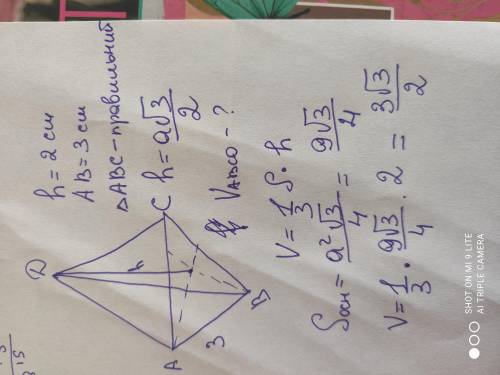 h = 2 см
AB = 3 см
△ABC – правильний
h = a√3/2
V_ABCD – ?
D
h
A
C
B
3
V = 1/3 S · h
Sосн = a²√3/4 = 9√3/4
V = 1/3 · 9√3/4 · 2 = 3√3/2
SHOT ON MI 9 LITE
AI TRIPLE CAMERA